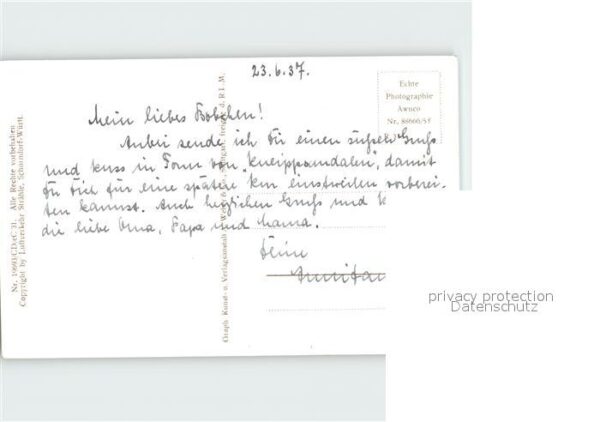 23.6.37.
Echte
Photographie
Awuco
Nr. 88660/55
Mein liebes Bobchen!
Anbei sende ich Dir einen süßen Gruß
und Kuss in Form von "Kneippsandalen", damit
Du Dich für eine spätere Kur einstweilen vorberei-
ten kannst. Auch herzlichen Gruß und K
die liebe Oma, Papa und Mama.
Deine
Nr. 19693/CD/cC 31. Alle Rechte vorbehalten
Copyright by Luftverkehr Strähle, Schorndorf-Württ.
Graph. Kunst- u. Verlagsanstalt freigeg. d. R.L.M.
privacy protection
Datenschutz